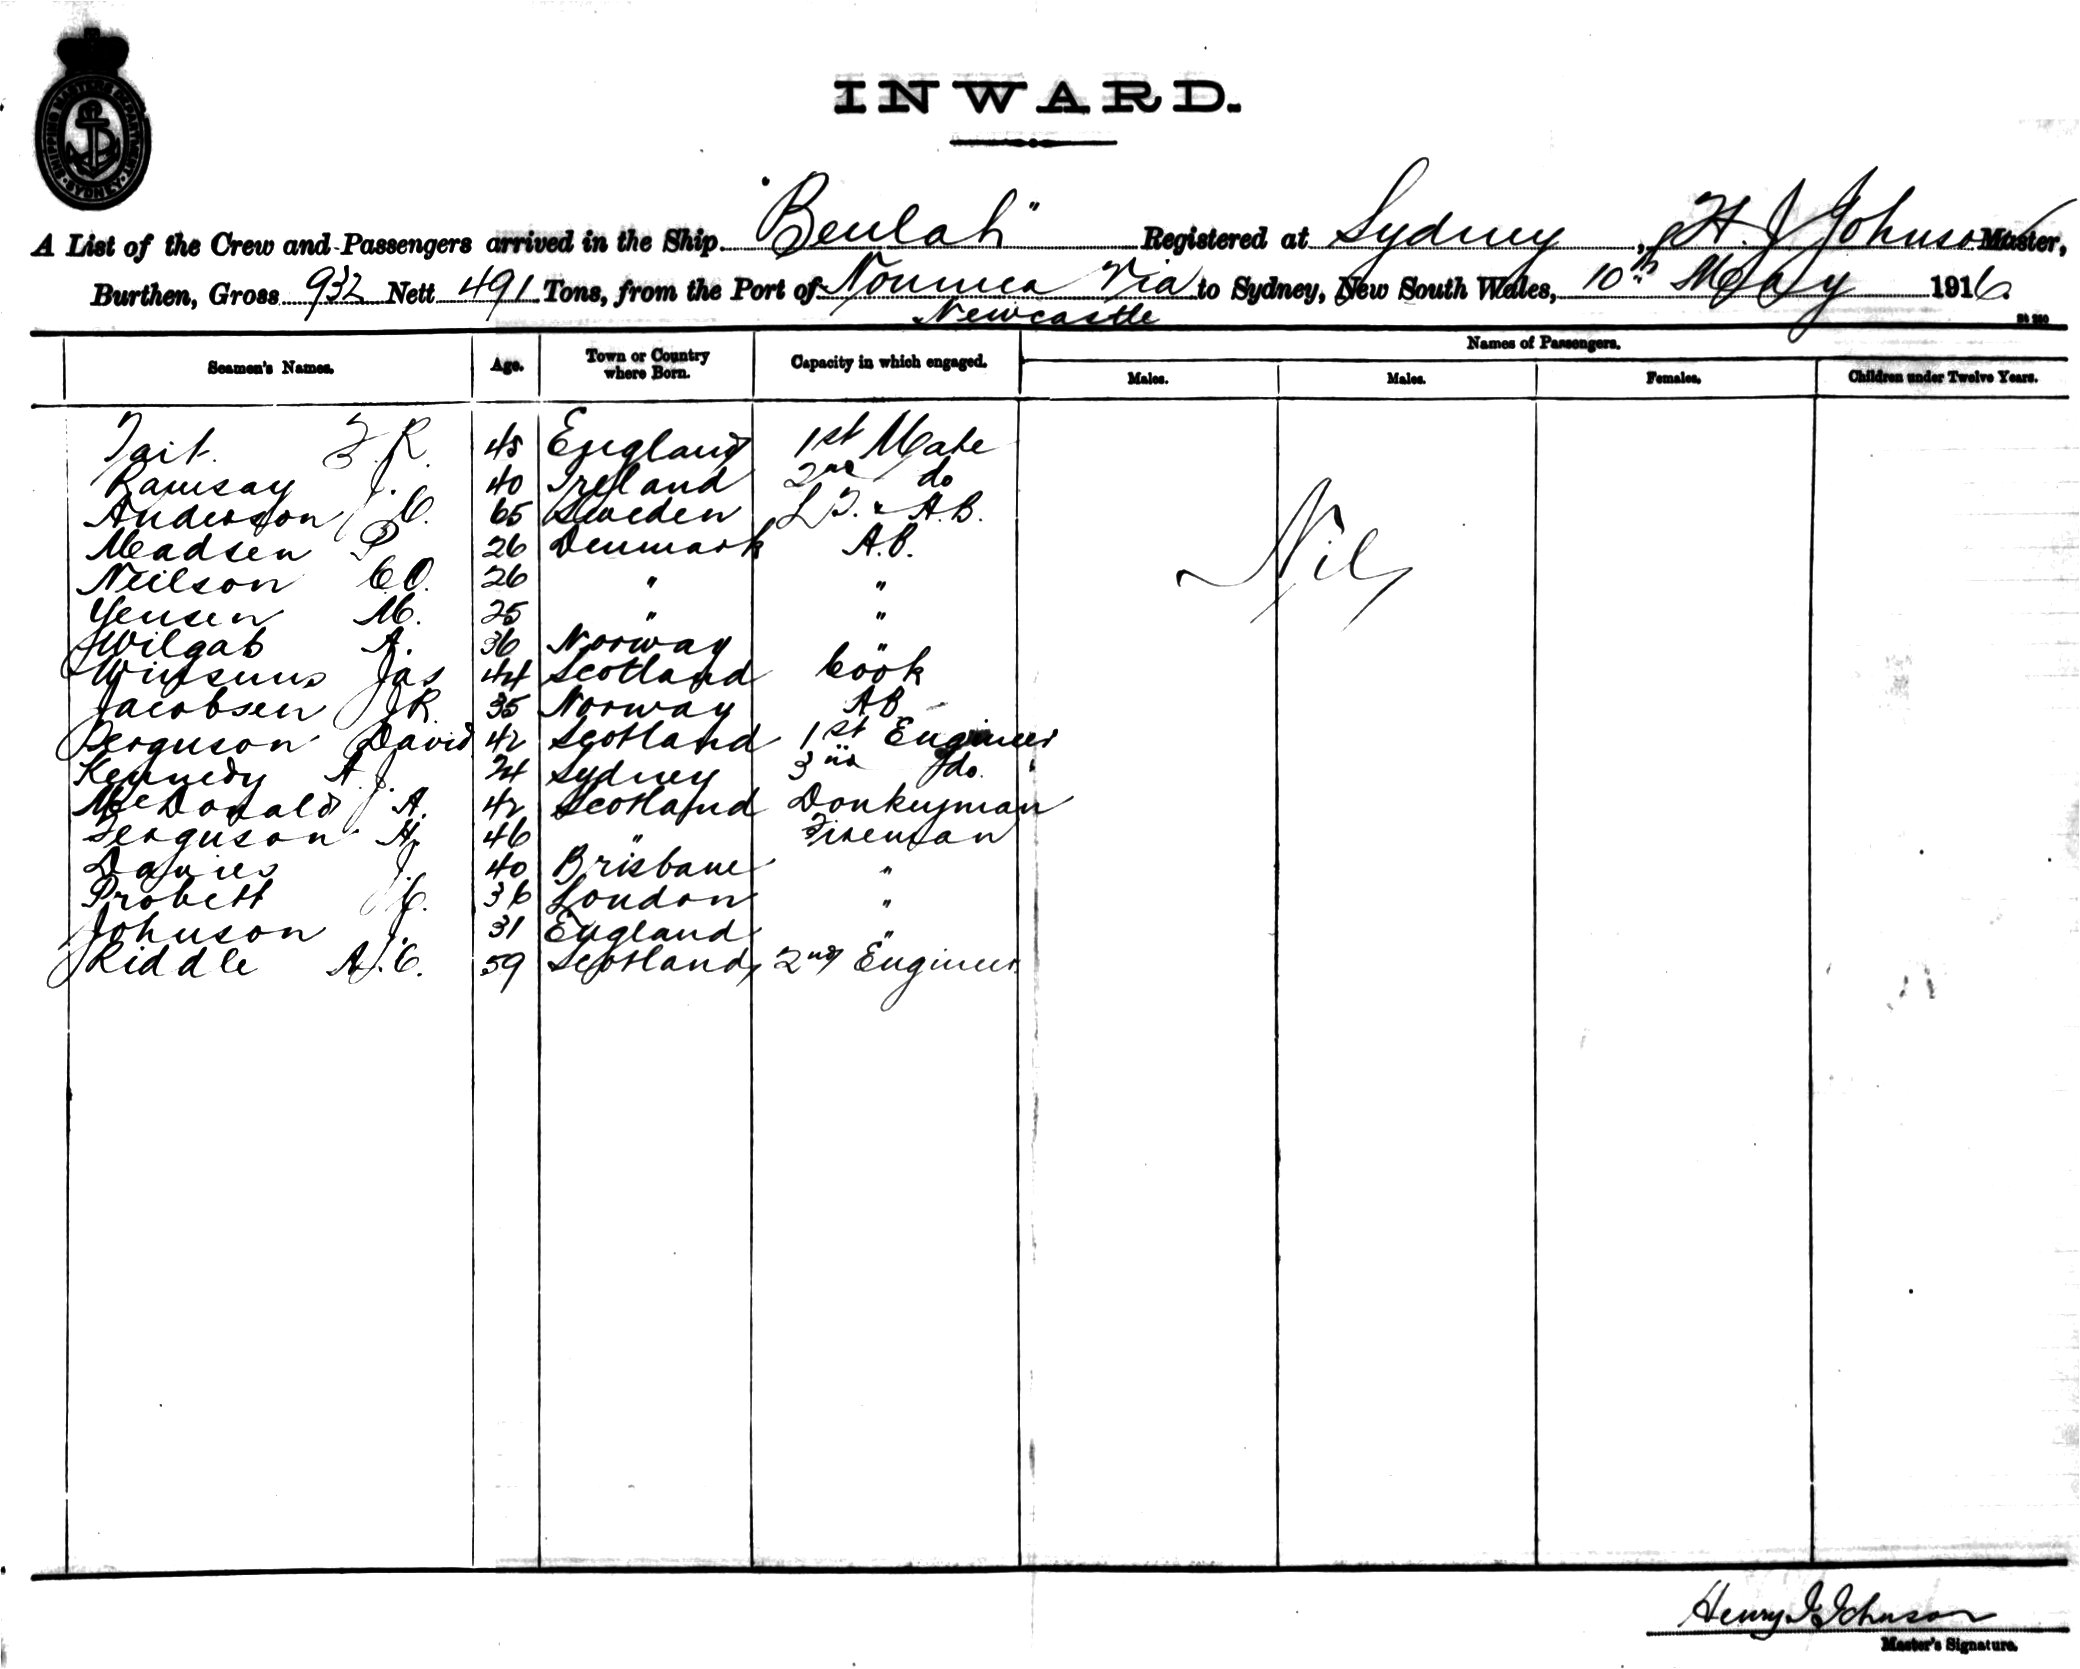 SHIPPING MASTER'S DEPARTMENT SYDNEY
INWARD.
A List of the Crew and Passengers arrived in the Ship "Beulah" Registered at Sydney, H. J. Johnson Master,
Burthen, Gross 932 Nett 491 Tons, from the Port of Noumea Via to Sydney, New South Wales, 10th May 1916.
Newcastle
Seamen's Names. Age. Town or Country where Born. Capacity in which engaged. Names of Passengers.
Males. Males. Females. Children under Twelve Years.
Tait. F. R. 45 England 1st Mate
Ramsay J. 40 Ireland 2nd do
Anderson C. 65 Sweden L.T. & A.B.
Madsen P 26 Denmark A.B.
Neilson C.O. 26 " "
Yensen M. 25 " "
Wilgab A. 36 Norway "
Jas 44 Scotland Cook
Jacobsen J.R. 35 Norway AB
Ferguson David 42 Scotland 1st Engineer
Kennedy A. J. 24 Sydney 3rd do.
McDonald J. A. 42 Scotland Donkeyman
Ferguson H. 46 " Fireman
Davies J. 40 Brisbane "
Probett C. 36 London "
Johnson J. 31 England "
Riddle A. J. C. 59 Scotland 2nd Engineer
Nil
Henry J Johnson
Master's Signature.